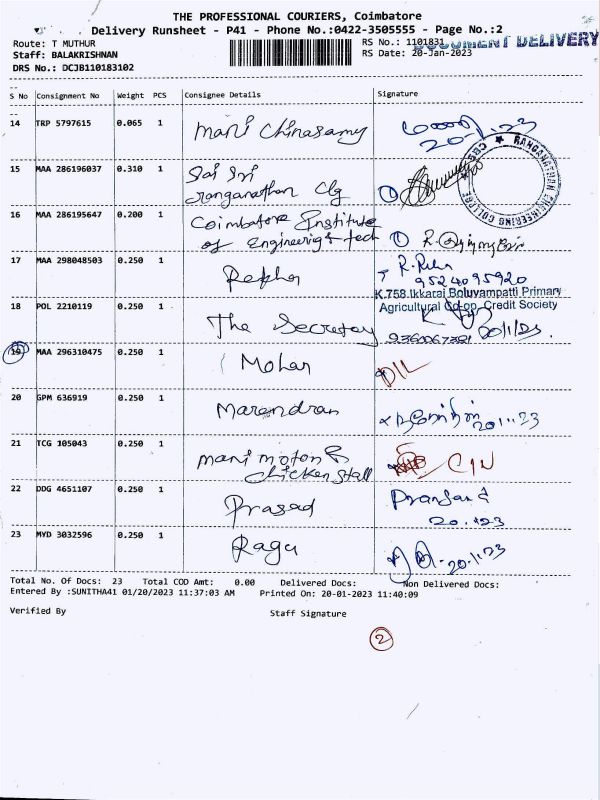 THE PROFESSIONAL COURIERS, Coimbatore
Delivery Runsheet - P41 - Phone No.:0422-3505555 - Page No.:2
Route: T MUTHUR
RS No.: 1101831
DOCUMENT DELIVERY
Staff: BALAKRISHNAN
RS Date: 20-Jan-2023
DRS No.: DCJB110183102
S No Consignment No Weight PCS Consignee Details Signature
14 TRP 5797615 0.065 1 Mani Chinasamy
15 MAA 286196037 0.310 1 Sai Sri
Ranganathan Clg
RANGANATHAN ENGINEERING COLLEGE
16 MAA 286195647 0.200 1 Coimbatore Institute
of Engineering & tech
17 MAA 298048503 0.250 1 Rekha R. Reka
9524095920
K.758.Ikkarai Boluvampatti Primary
Agricultural Co-op. Credit Society
18 POL 2210119 0.250 1 The Secretary
9360067381 20/1/23.
19 MAA 296310475 0.250 1 Mohan DIL
20 GPM 636919 0.250 1 Marendran
21 TCG 105043 0.250 1 Mani moton &
chicken stall CIN
22 DDG 4651107 0.250 1 Prasad
23 MYD 3032596 0.250 1 Ragu
Total No. Of Docs: 23 Total COD Amt: 0.00 Delivered Docs: Non Delivered Docs:
Entered By :SUNITHA41 01/20/2023 11:37:03 AM Printed On: 20-01-2023 11:40:09
Verified By Staff Signature
2